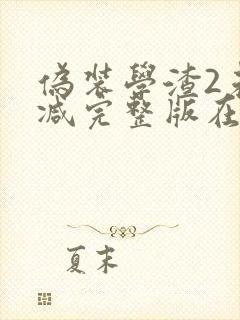 偽装學渣2未
减完整版在
夏末